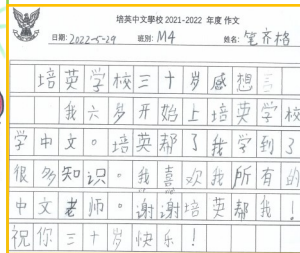 培英中文學校 2021-2022 年度 作文
日期: 2022-5-29 班別: M4 姓名: 笔齐格
培英学校三十岁感想言
我六岁开始上培英学校
学中文。培英帮了我学到了
很多知识。我喜欢我所有的
中文老师。谢谢培英帮我!
祝你三十岁快乐!